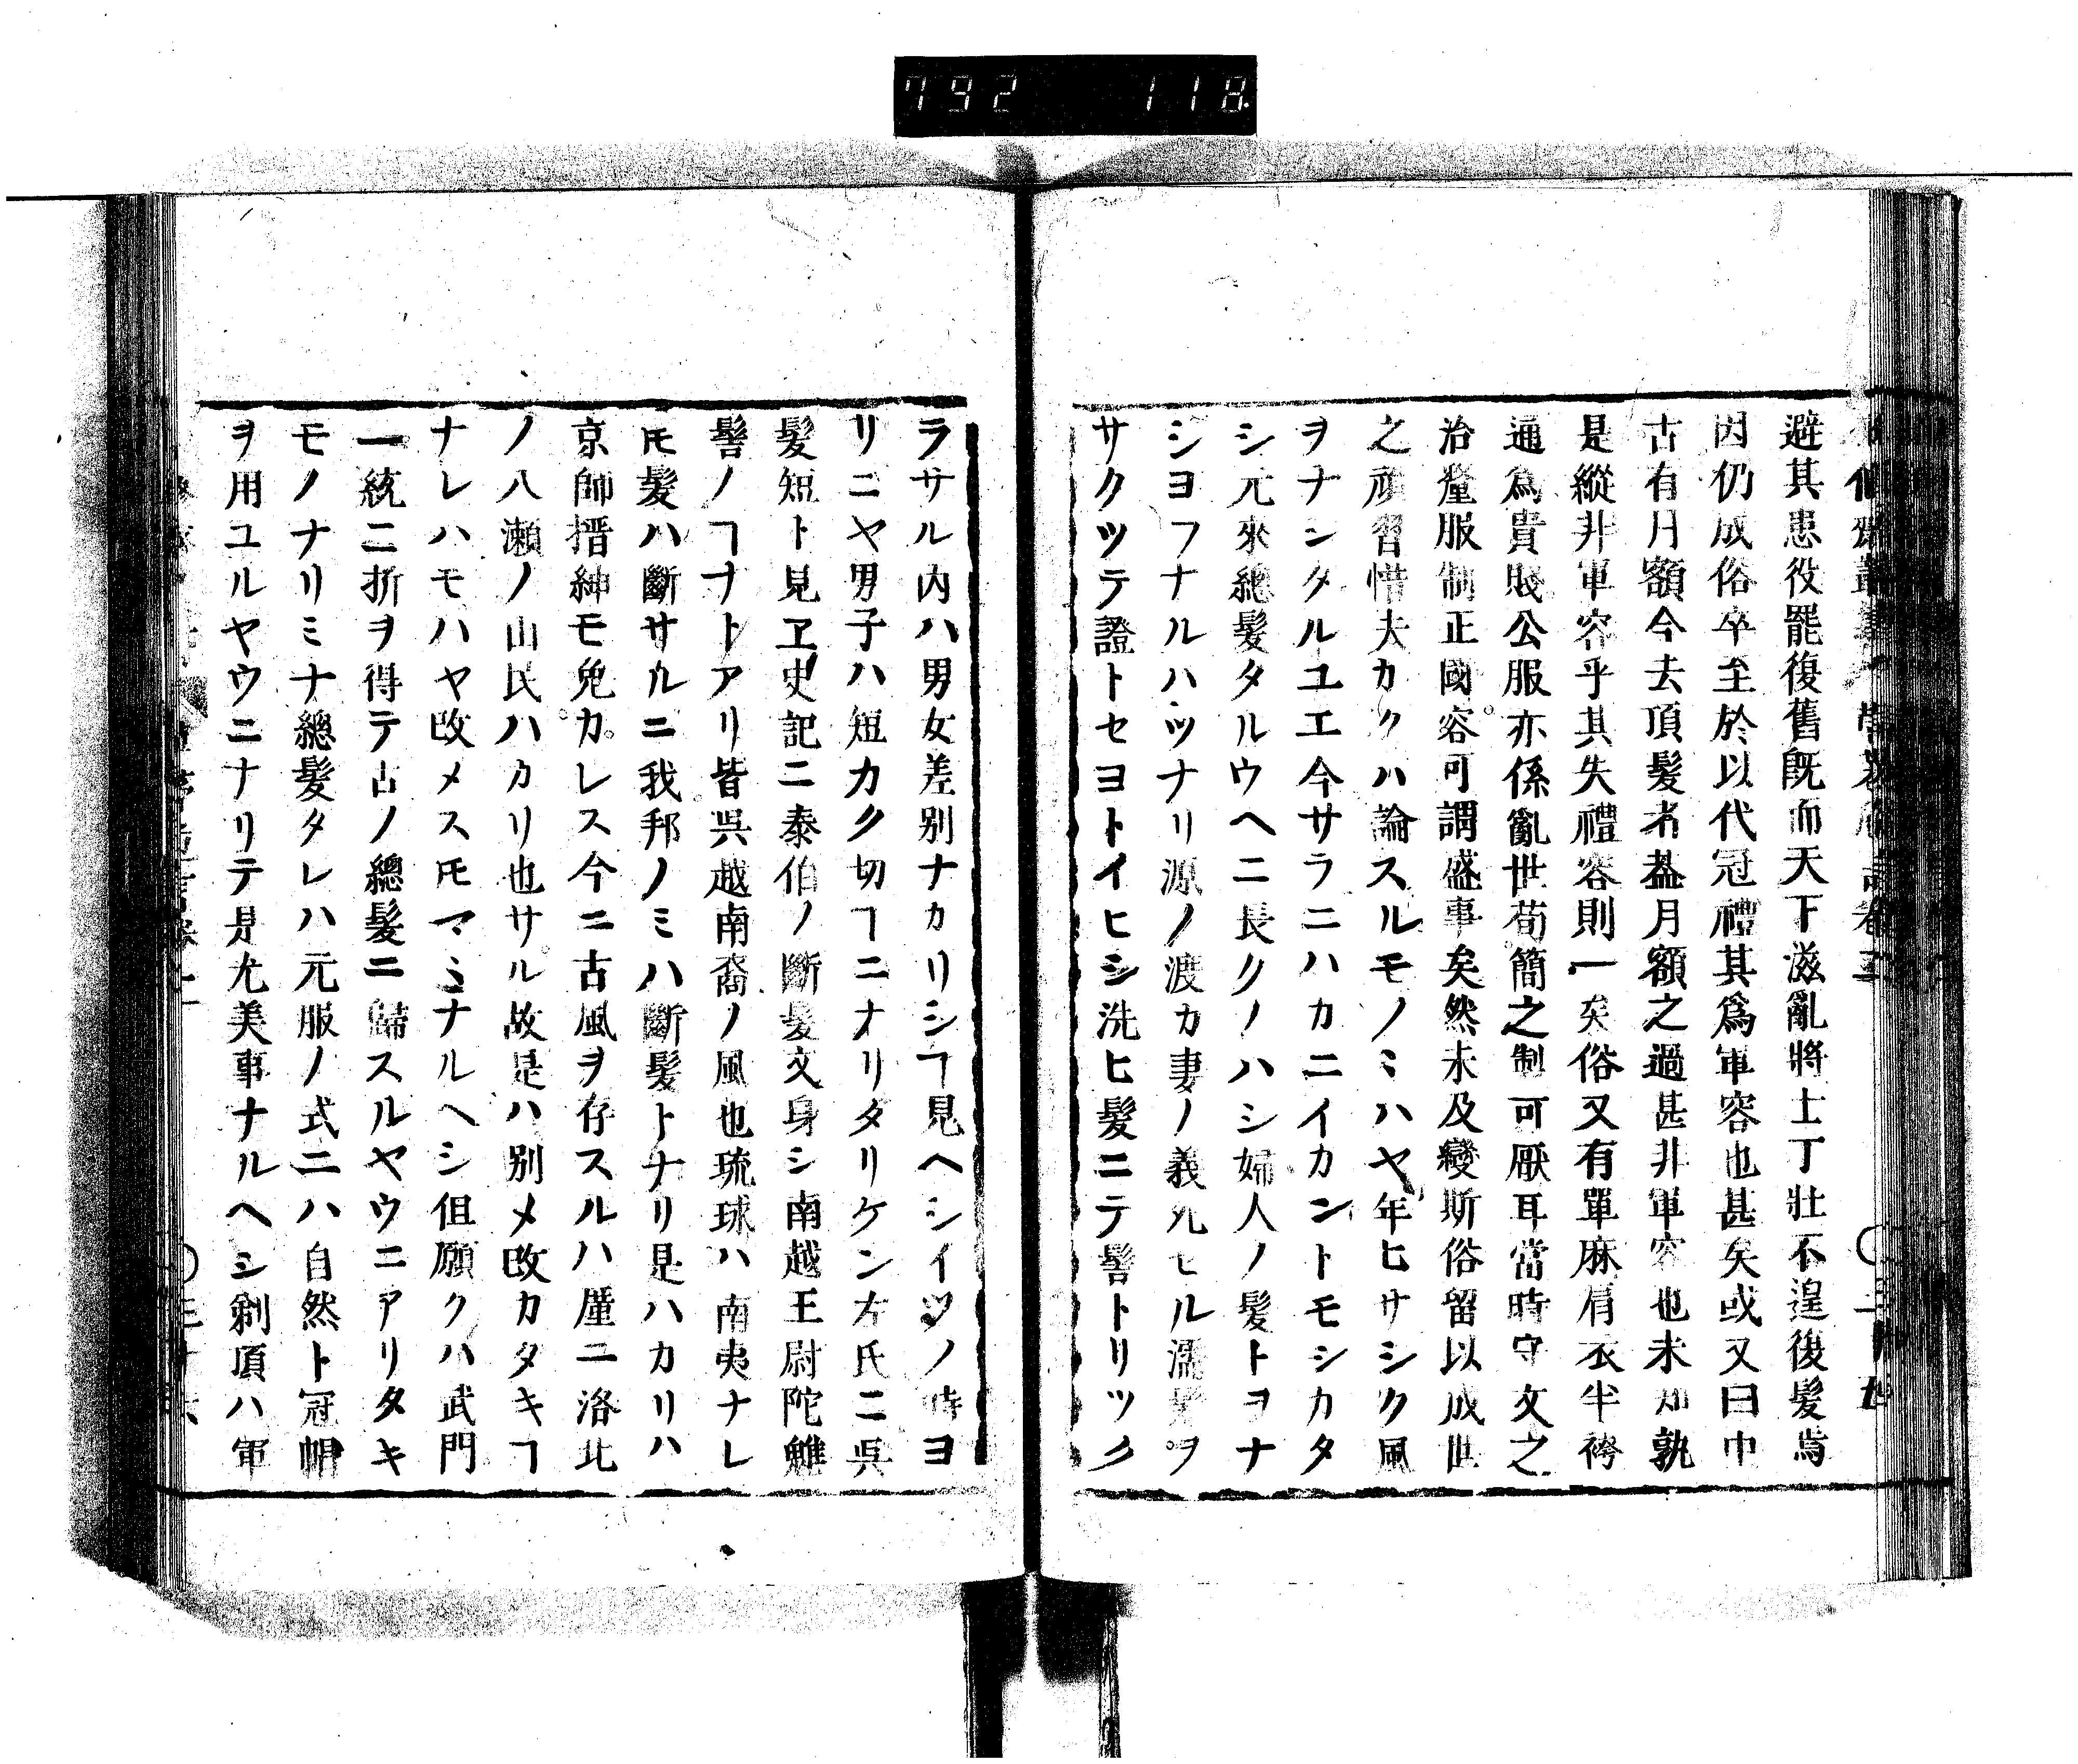 792 118
避其患役罷復舊既而天下滋亂將士丁壯不遑復髮焉
因仍成俗卒至於以代冠禮其爲軍容也甚矣或又曰中
古有月額今去頂髮者蓋月額之過甚非軍容也未知孰
是縱非軍容乎其失禮容則一矣俗又有單麻肩衣半袴
通爲貴賤公服亦係亂世苟簡之制可厭耳當時守文之
治釐服制正國容可謂盛事矣然未及變斯俗留以成世
之頑習惜夫カクハ論スルモノミハヤ年ヒサシク風
ヲナシタルユエ今サラニハカニイカントモシカタ
シ元來總髮タルウヘニ長クノハシ婦人ノ髮トヲナ
シヨフナルハツナリ源ノ渡カ妻ノ義死セル濡髮ヲ
サクツテ證トセヨトイヒシ洗ヒ髮ニテ髻トリツク
ラサル内ハ男女差别ナカリシヿ見ヘシイツノ時ヨ
リニヤ男子ハ短カク切ヿニナリタリケン左氏ニ呉
髮短ト見エ史記ニ泰伯ノ斷髮文身シ南越王尉陀魋
髻ノヿナトアリ皆呉越南裔ノ風也琉球ハ南夷ナレ
𪜈髮ハ斷サルニ我邦ノミハ斷髮トナリ是ハカリハ
京師搢紳モ免カレス今ニ古風ヲ存スルハ厪ニ洛北
ノ八瀬ノ山民ハカリ也サル故是ハ别メ改カタキヿ
ナレハモハヤ改メス𪜈マヽナルヘシ但願クハ武門
一統ニ折ヲ得テ古ノ總髮ニ歸スルヤウニアリタキ
モノナリミナ總髮タレハ元服ノ式ニハ自然ト冠帽
ヲ用ユルヤウニナリテ是尤美事ナルヘシ剃頂ハ軍